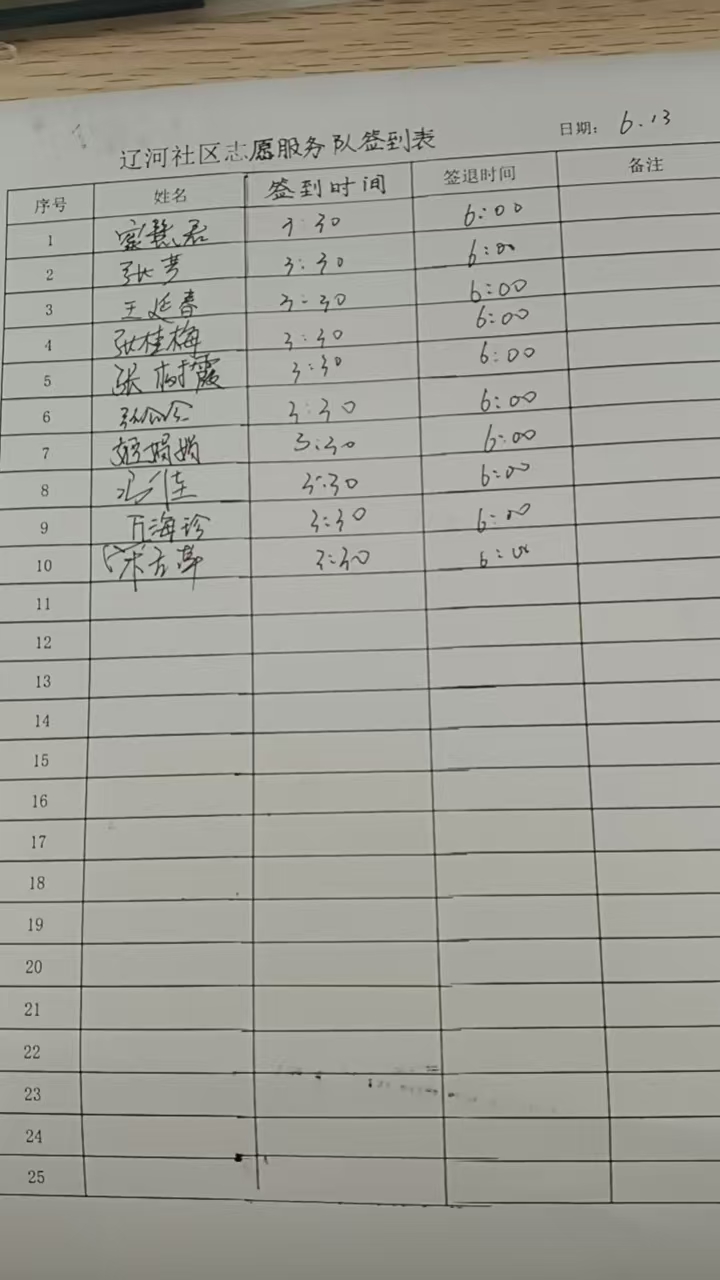 辽河社区志愿服务队签到表
日期: 6.13
序号 姓名 签到时间 签退时间 备注
1 3:30 6:00
2 张梦 3:30 6:00
3 王廷春 3:30 6:00
4 张桂梅 3:30 6:00
5 张树霞 3:30 6:00
6 3:30 6:00
7 娟娟 3:30 6:00
8 3:30 6:00
9 万海珍 3:30 6:00
10 3:30 6:00
11
12
13
14
15
16
17
18
19
20
21
22
23
24
25